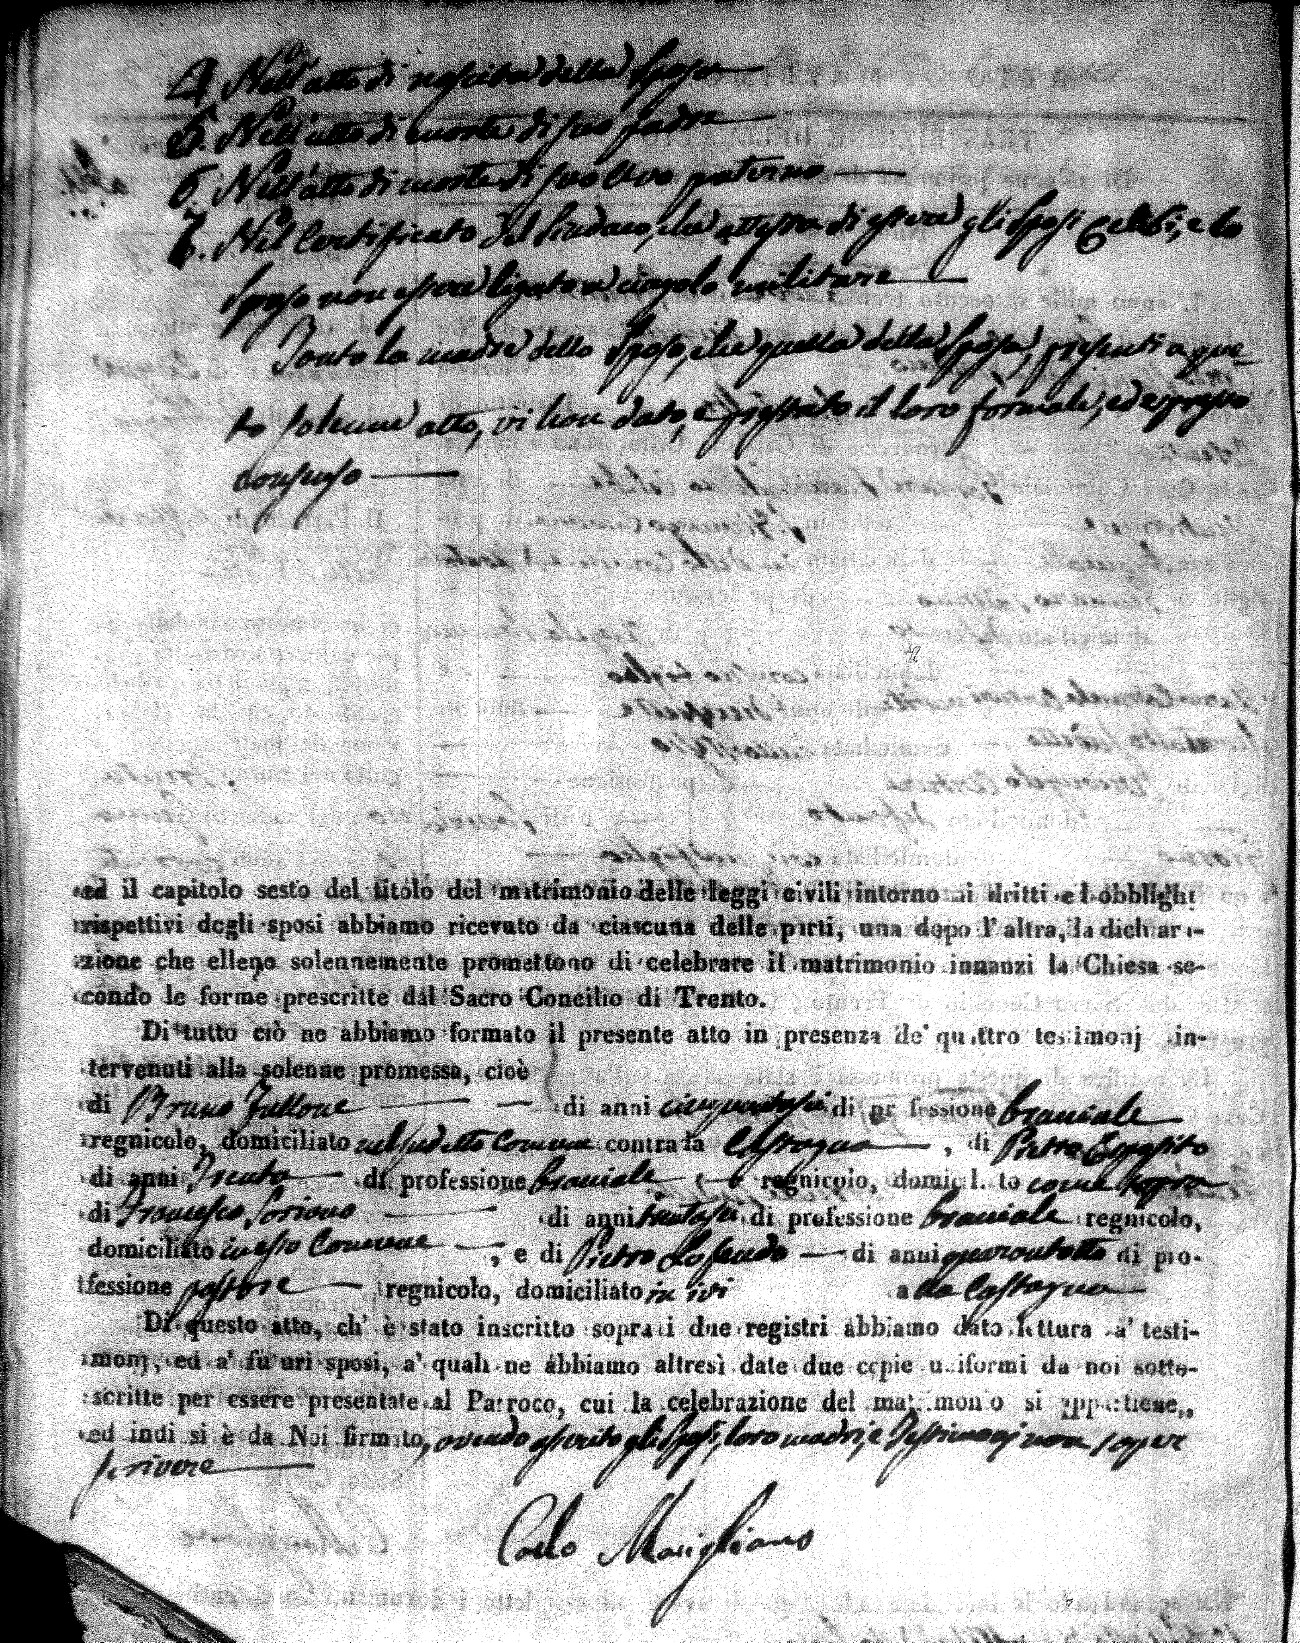 4. Nell'atto di nascita della Sposa
5. Nell'atto di morte di suo padre
6. Nell'atto di morte di suo avo paterno
7. Nel certificato del Sindaco, che attesta di essere gli Sposi celibi, e lo
Sposo non essere ligato a cingolo militare
Tanto la madre dello Sposo, che quella della Sposa, presenti a que-
to solenne atto, vi han dato, e prestato il loro formale, ed espresso
consenso
ed il capitolo sesto del titolo del matrimonio delle leggi civili intorno ai dritti e l obblighi
rispettivi degli sposi abbiamo ricevuto da ciascuna delle parti, una dopo l' altra, la dichiara-
zione che elleno solennemente promettono di celebrare il matrimonio innanzi la Chiesa se-
condo le forme prescritte dal Sacro Concilio di Trento.
Di tutto ciò ne abbiamo formato il presente atto in presenza de' quattro testimonj in-
tervenuti alla solenne promessa, cioè
di Bruno Fullone di anni cinquantasei di professione bracciale
regnicolo, domiciliato nel sudetto Comune contrata Castagna, di Pietro Esposito
di anni Trenta di professione bracciale regnicolo, domiciliato come sopra
di Francesco Soriano di anni trentasei di professione bracciale regnicolo,
domiciliato in esso Comune, e di Pietro di anni quarantotto di pro-
fessione pastore regnicolo, domiciliato in ivi a da Castagna
Di questo atto, ch' è stato inscritto sopra i due registri abbiamo dato lettura a' testi-
monj, ed a' futuri sposi, a' quali ne abbiamo altresì date due copie uniformi da noi sotto-
scritte per essere presentate al Parroco, cui la celebrazione del matrimonio si appartiene,
ed indi si è da Noi firmato, avendo asserito gli Sposi, loro madri, e Testimonj non saper
scrivere
Carlo Marigliano